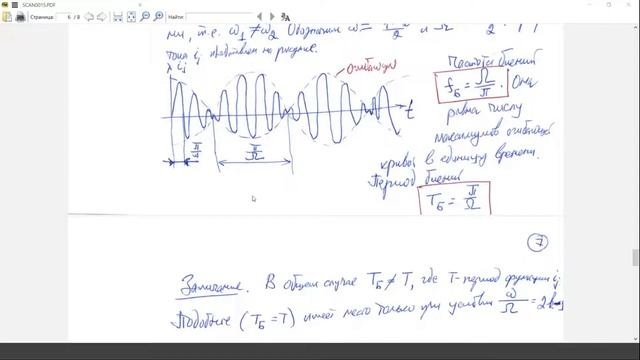 SCAN0015.PDF
Страница: 6 / 8
Поиск
ми, т.е. ω₁≠ω₂ Обозначим ω=
тока iⱼ представлен на рисунке.
iⱼ
огибающая
t
π/Ω
Частота биений
f_Б = Ω/π . Она
равна числу
максимумов огибающей
кривой в единицу времени.
Период биений
T_Б = π/Ω
7
Замечание. В общем случае T_Б≠T, где T-период функции iⱼ
Подобное (T_Б=T) имеет место только при условии ω/Ω = 2k-1